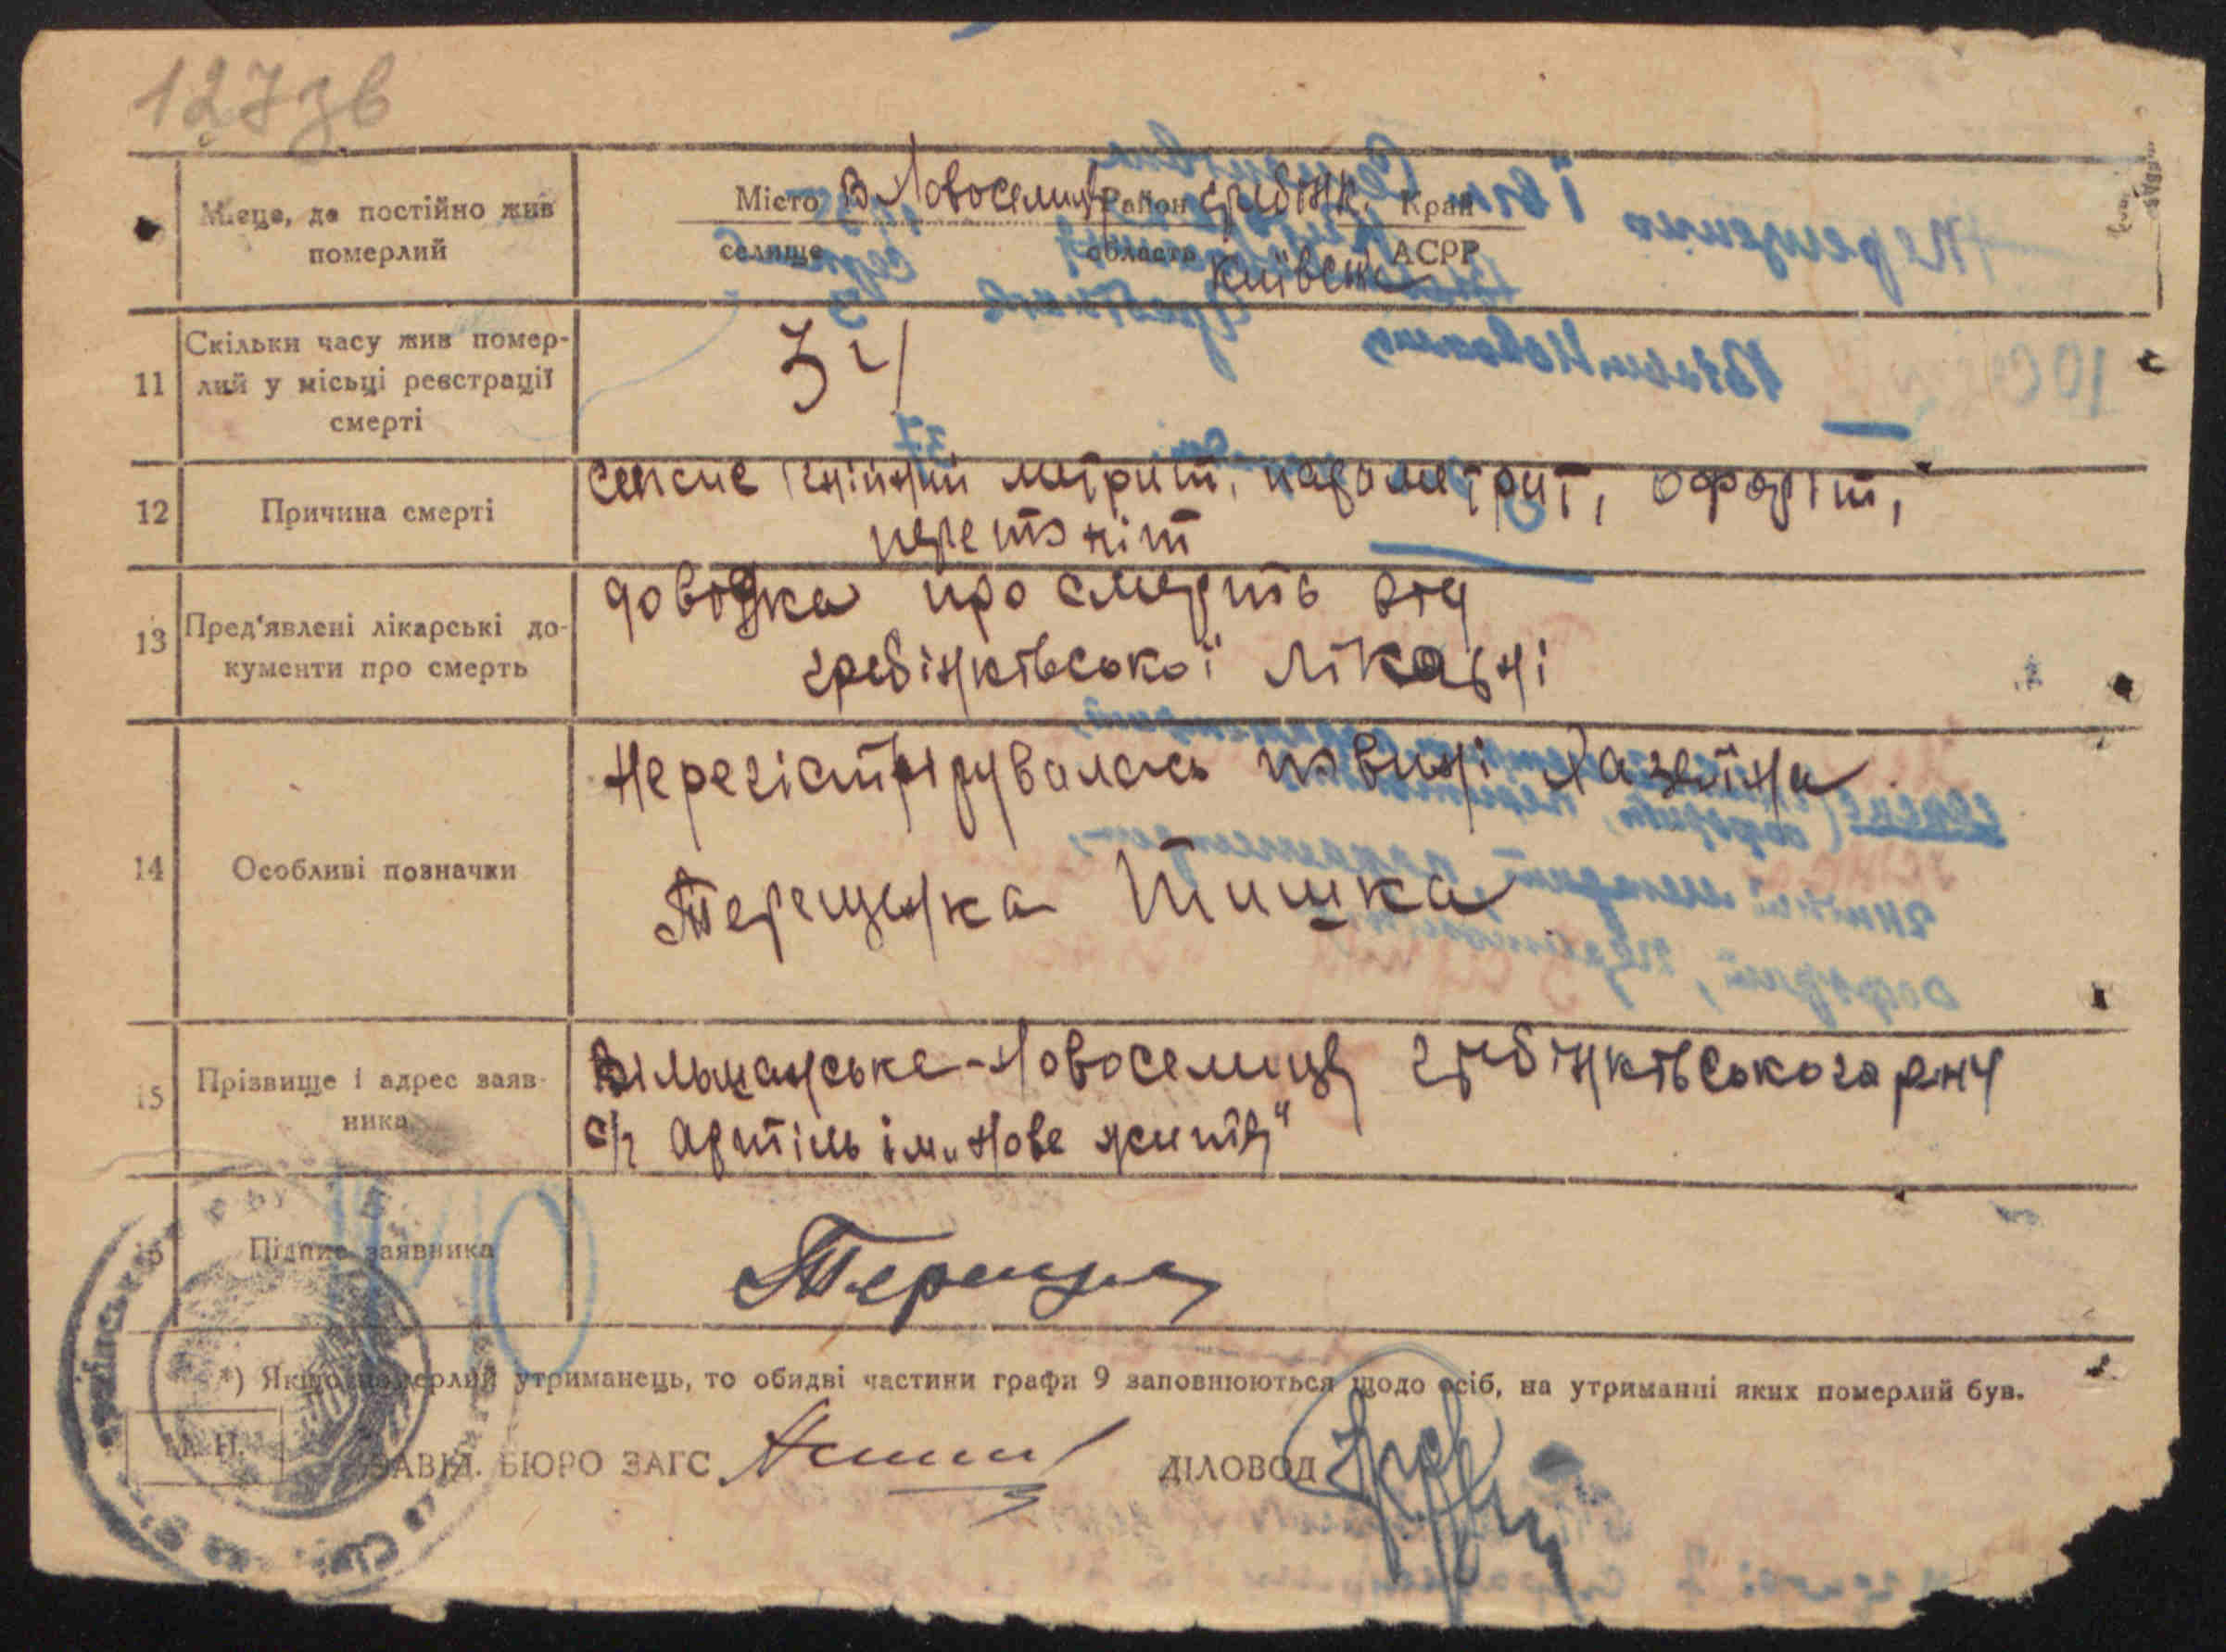 127зв
Місце, де постійно жив померлий
Місто В Новоселиця Район гребінк. Край
селище область Київська АСРР
11 Скільки часу жив помер-
лий у місьці реєстрації
смерті
3 ч
12 Причина смерті
сепсис гнійний метрит, параметрит, офорит,
перетоніт
13 Пред'явлені лікарські до-
кументи про смерть
довідка про смерть від
гребінківської лікарні
14 Особливі позначки
Нерегістрірувалась повині Хазяїна
Терещенка Тимішка
15 Прізвище і адрес заяв-
ника
Вільшанська-Новоселиця гребінківського рну
с/г артіль ім. „Нове життя"
Підпис заявника
Терещен
*) Якщо померлий утриманець, то обидві частини графи 9 заповнюються щодо осіб, на утриманні яких померлий був.
М. П.
ЗАВІД. БЮРО ЗАГС ДІЛОВОД